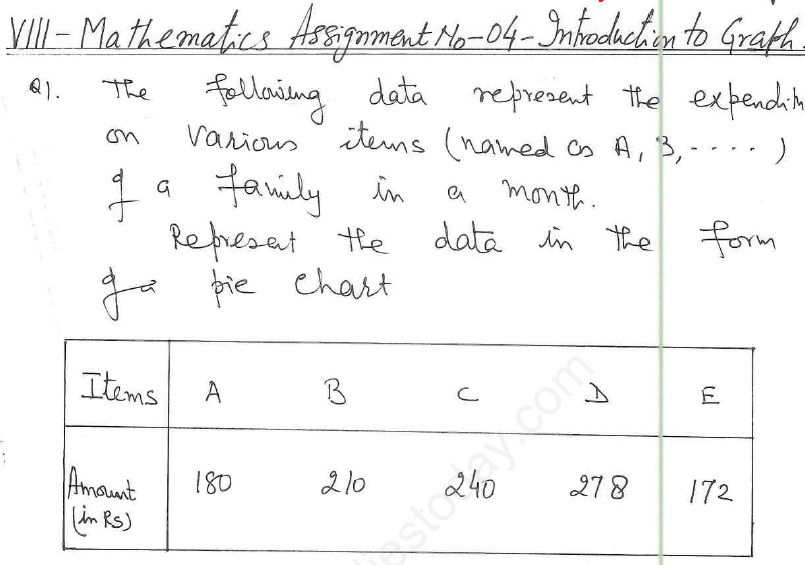 VIII - Mathematics Assignment No-04 - Introduction to Graph.
Q1. The following data represent the
on various items (named as A, B, - - - - )
of a family in a month.
Represent the data in the form
of a pie chart
Items A B C D E
Amount (in Rs) 180 210 240 278 172
iestoday.com